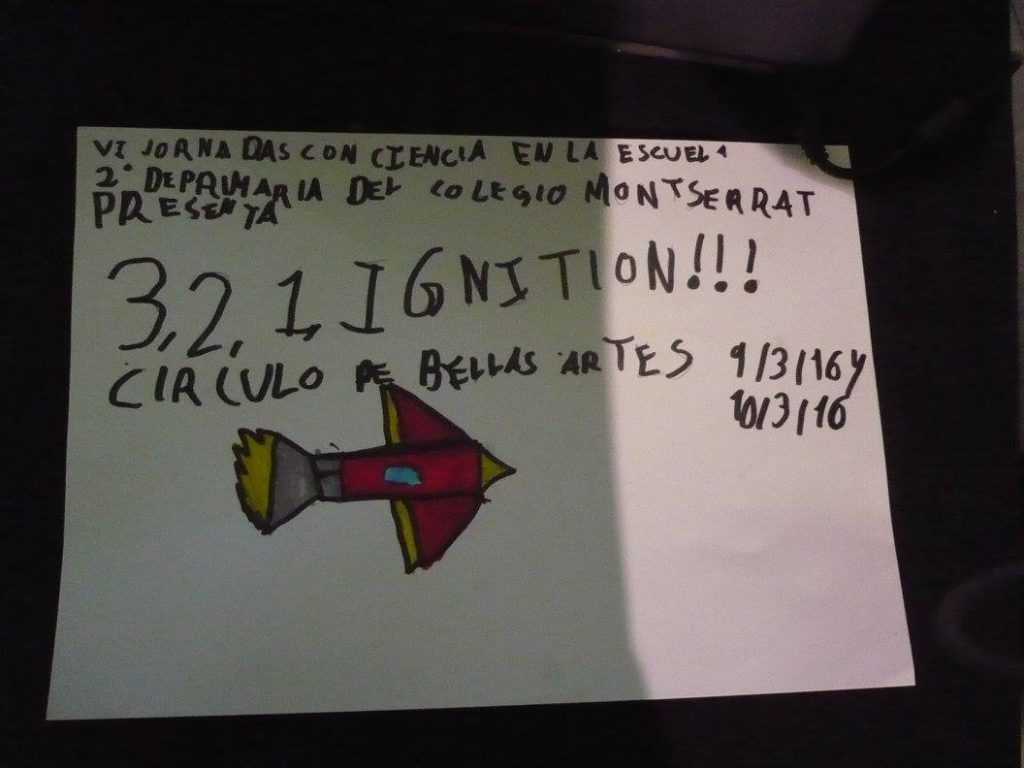 VI JORNADAS CON CIENCIA EN LA ESCUELA
2º DE PRIMARIA DEL COLEGIO MONTSERRAT
PRESENTA
3, 2, 1, IGNITION!!!
CIRCULO DE BELLAS ARTES 9/3/16 y
10/3/16